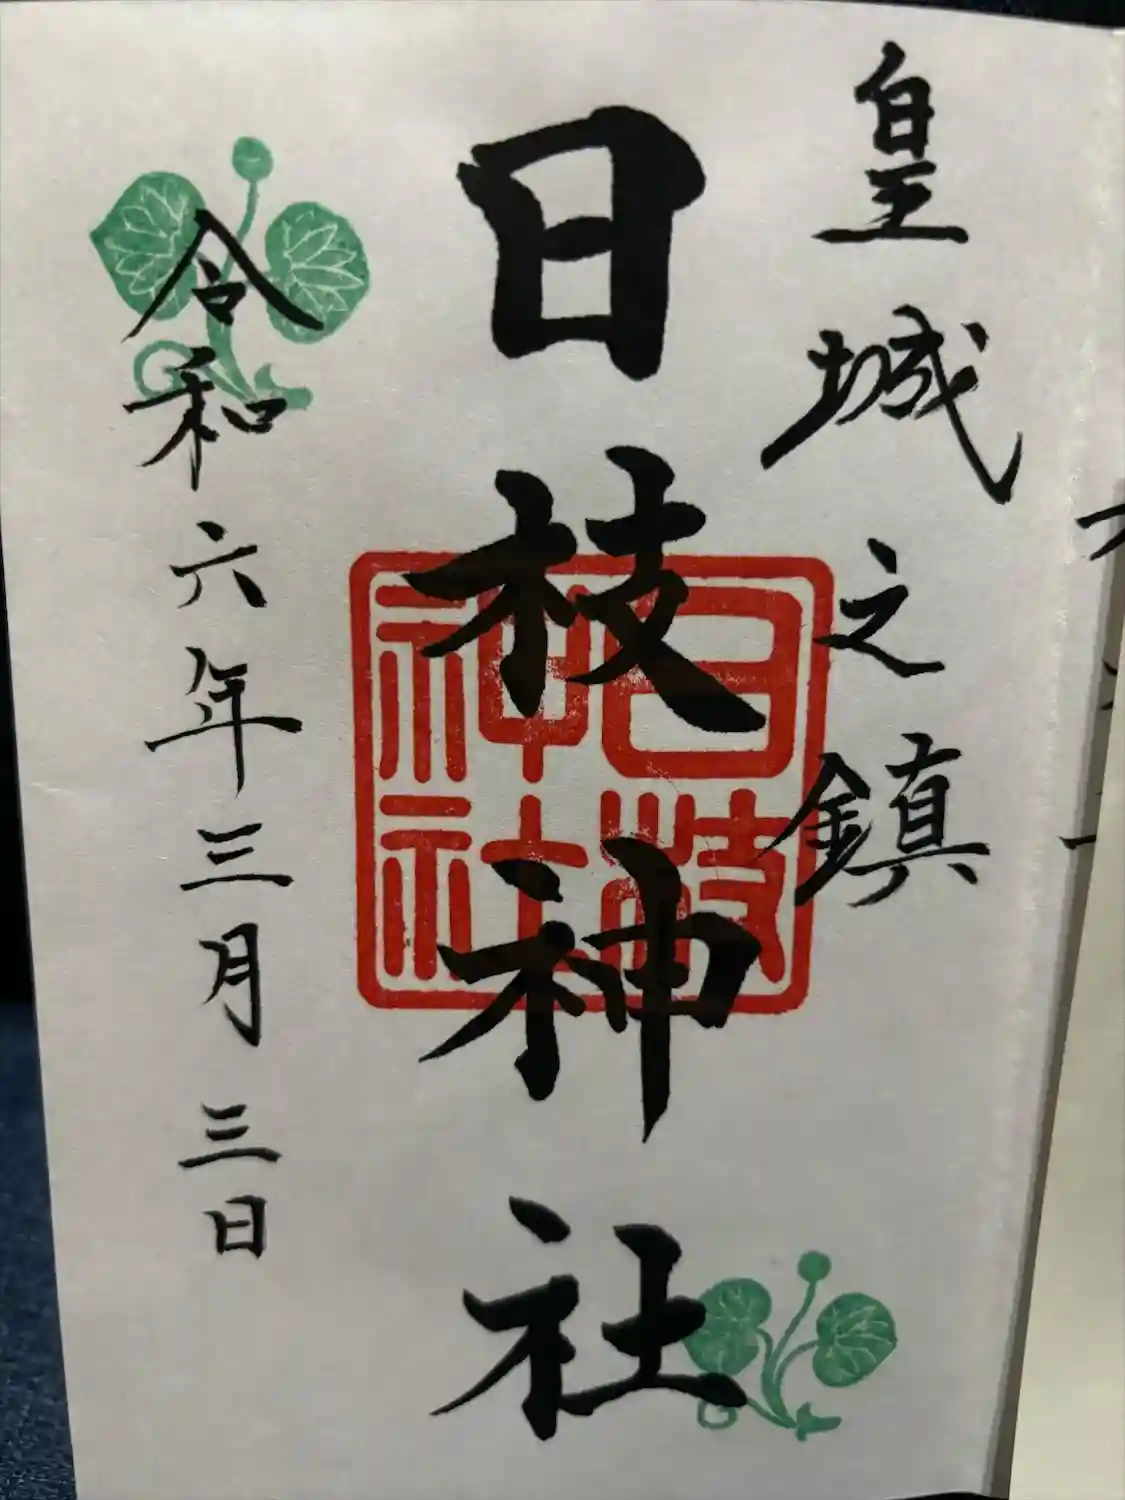 皇城之鎮
日枝神社
日枝神社
令和六年三月三日